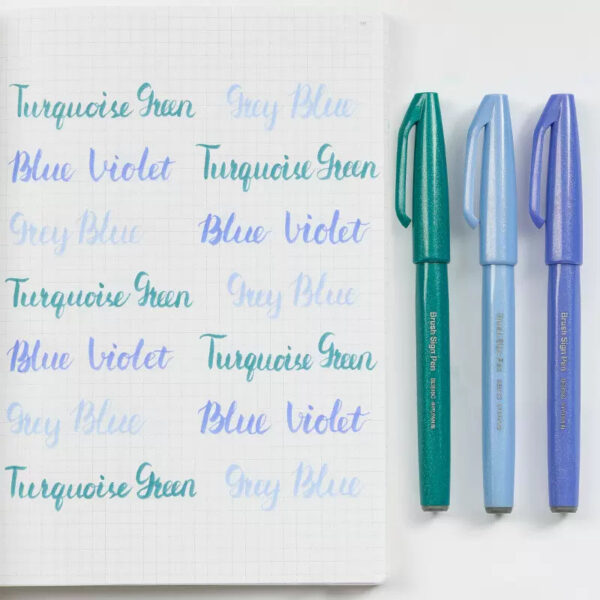 Turquoise Green Grey Blue
Blue Violet Turquoise Green
Grey Blue Blue Violet
Turquoise Green Grey Blue
Blue Violet Turquoise Green
Grey Blue Blue Violet
Turquoise Green Grey Blue
Brush Sign Pen
Brush Sign Pen
Brush Sign Pen